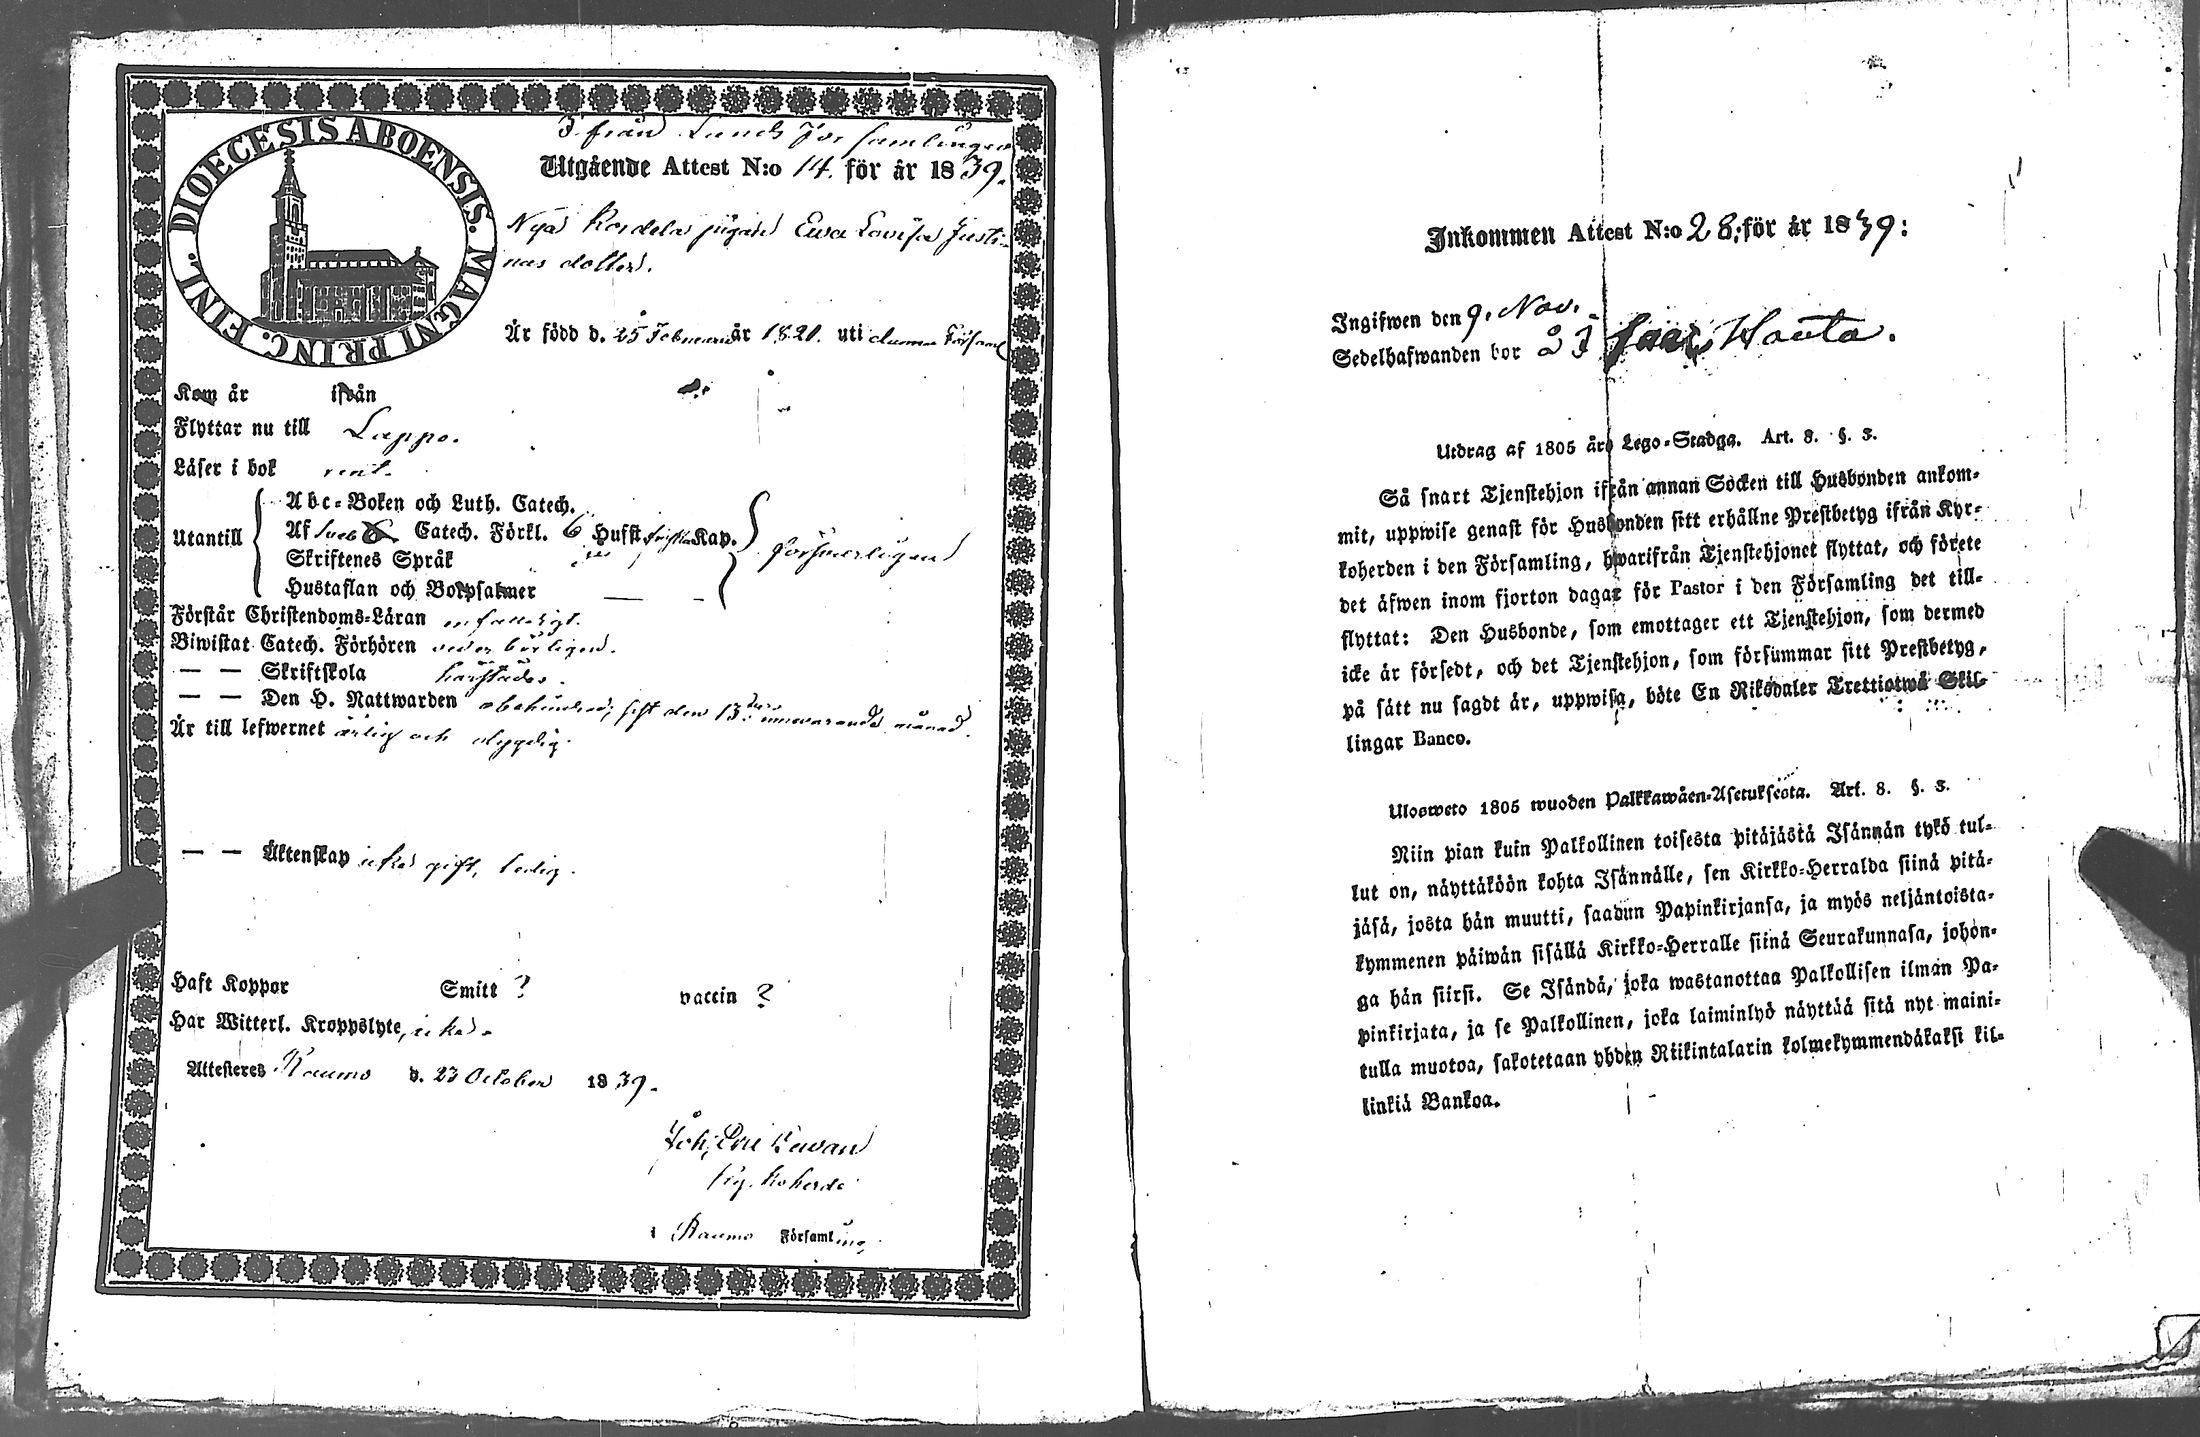 DIOECESIS ABOENSIS. MAGNI PRINC. FINL.
I från Lands församlingen
Utgående Attest N:o 14. för år 1839.
Nya Kordela pigan Ewa Lovisa Justi-
nas dotter.
Är född d. 25 Februari år 1821. uti denna Församl
Kom år ifrån
Flyttar nu till Lappo.
Läser i bok rent.
Abc-Boken och Luth. Catech.
Utantill Af Sveb Catech. Förkl. 6 Hufst. Kap.
Skriftenes Språk försvarligen
Hustaflan och Botpsalmer — -
Förstår Christendoms-Läran enfaldigt.
Biwistat Catech. Förhören vederbörligen.
— — Skriftskola härstädes.
— — Den H. Nattwarden obehindrad, sist den 13de innevarande månad.
Är till lefwernet ärlig och dygdig.
— — Äktenskap icke gift, ledig.
Haft Koppor Smitt ? vaccin ?
Har Witterl. Kroppslyte, icke.
Attesteras Raumo d. 23 October 1839.
Joh. Eric
Kyrkoherde
i Raumo Församling
Inkommen Attest N:o 28: för år 1839:
Ingifwen den 9. Nov.
Sedelhafwanden bor å Isaac Wanta.
Utdrag af 1805 års Lego-Stadga. Art. 8. §. 3.
Så snart Tjenstehjon ifrån annan Socken till Husbonden ankom-
mit, uppwise genast för Husbonden sitt erhållne Prestbetyg ifrån Kyr-
koherden i den Församling, hwarifrån Tjenstehjonet flyttat, och förete
det äfwen inom fjorton dagar för Pastor i den Församling det till-
flyttat: Den Husbonde, som emottager ett Tjenstehjon, som dermed
icke är försedt, och det Tjenstehjon, som försummar sitt Prestbetyg,
på sätt nu sagdt är, uppwisa, böte En Riksdaler Trettiotwå Skil-
lingar Banco.
Ulosweto 1805 wuoden Palkkawäen-Asetuksesta. Art. 8. §. 3.
Niin pian kuin Palkollinen toisesta pitäjästä Isännän tykö tul-
lut on, näyttäköön kohta Isännälle, sen Kirkko-Herralda siinä pitä-
jäsä, josta hän muutti, saadun Papinkirjansa, ja myös neljäntoista-
kymmenen päiwän sisällä Kirkko-Herralle siinä Seurakunnasa, johon-
ga hän siirsi. Se Isändä, joka wastanottaa Palkollisen ilman Pa-
pinkirjata, ja se Palkollinen, joka laiminlyö näyttää sitä nyt maini-
tulla muotoa, sakotetaan yhden Riikintalarin kolmekymmendäkaksi kil-
linkiä Bankoa.